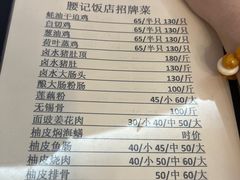 腰记饭店招牌菜
蚝油干迫鸡 65/半只 130/只
白切鸡 65/半只 130/只
葱油鸡 65/半只 130/只
荷叶蒸鸡 65/半只 130/只
卤水猪肚顶 180/斤
卤水猪肚 100/斤
卤水大肠头 130/斤
酿大肠粉肠 100/斤
莲藕粉 45/小 60/大
无锡骨 100/斤
面豉姜花肉 30/小 40/中 50/大
柚皮焖海螨 时价
柚皮鱼肠 40/小 45/中 50/大
柚皮烧肉 40/小 50/中 60/大
柚皮排骨 50/中 60/大